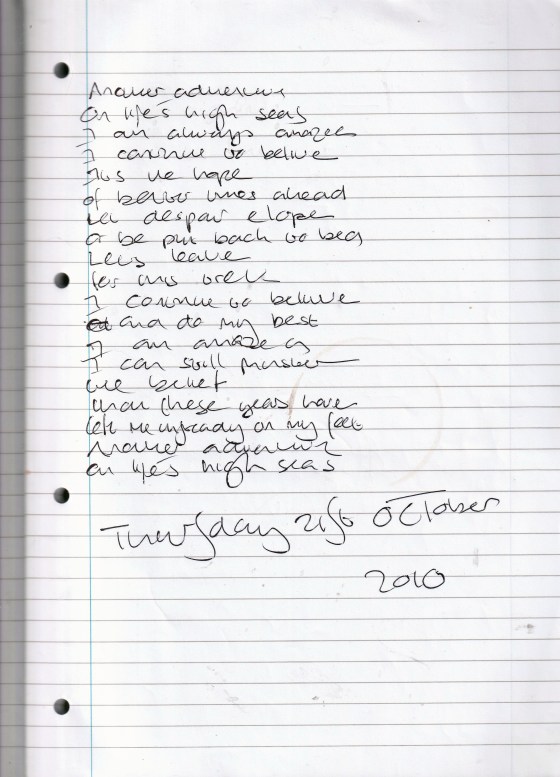 Another adventure
On life's high seas
I am always amazed
I continue to believe
the hope
of better times ahead
Let despair elope
or be put back to bed
leave
for this
I continue to believe
and do my best
I am amazed
I can still muster
the belief
these years have
left me unsteady on my feet
Another adventure
on life's high seas
Thursday 21st October
2010